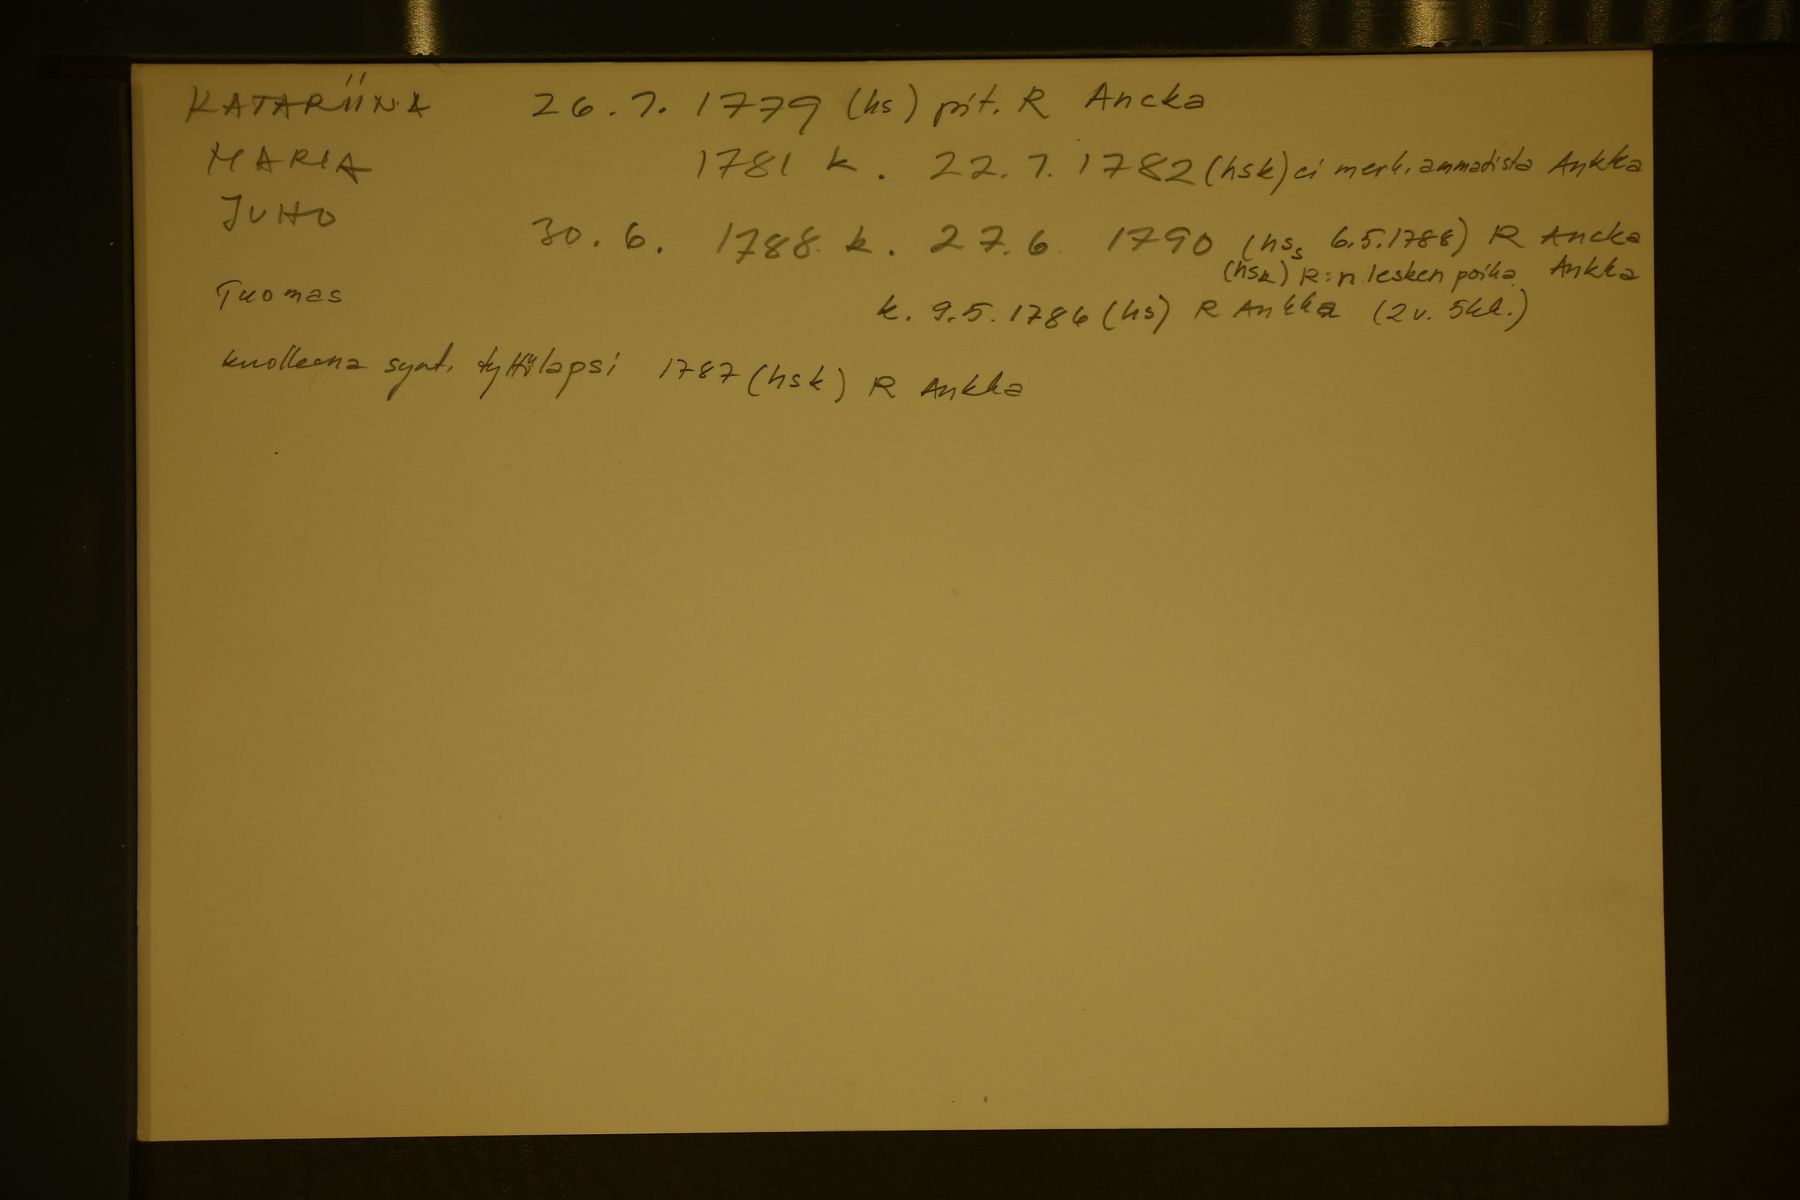 KATARIINA 26.7.1779 (hs) pit. R Ancka
MARIA 1781 k. 22.7.1782 (hsk) ei merk. ammatista Ankka
JUHO 30.6. 1788. k. 27.6 1790 (hss 6.5.1788) R Ancka
(hsk) R:n lesken poika Ankka
Tuomas k. 9.5.1786 (hs) R Ankka (2v. 5kk.)
kuolleena synt. tyttölapsi 1787 (hsk) R Ankka